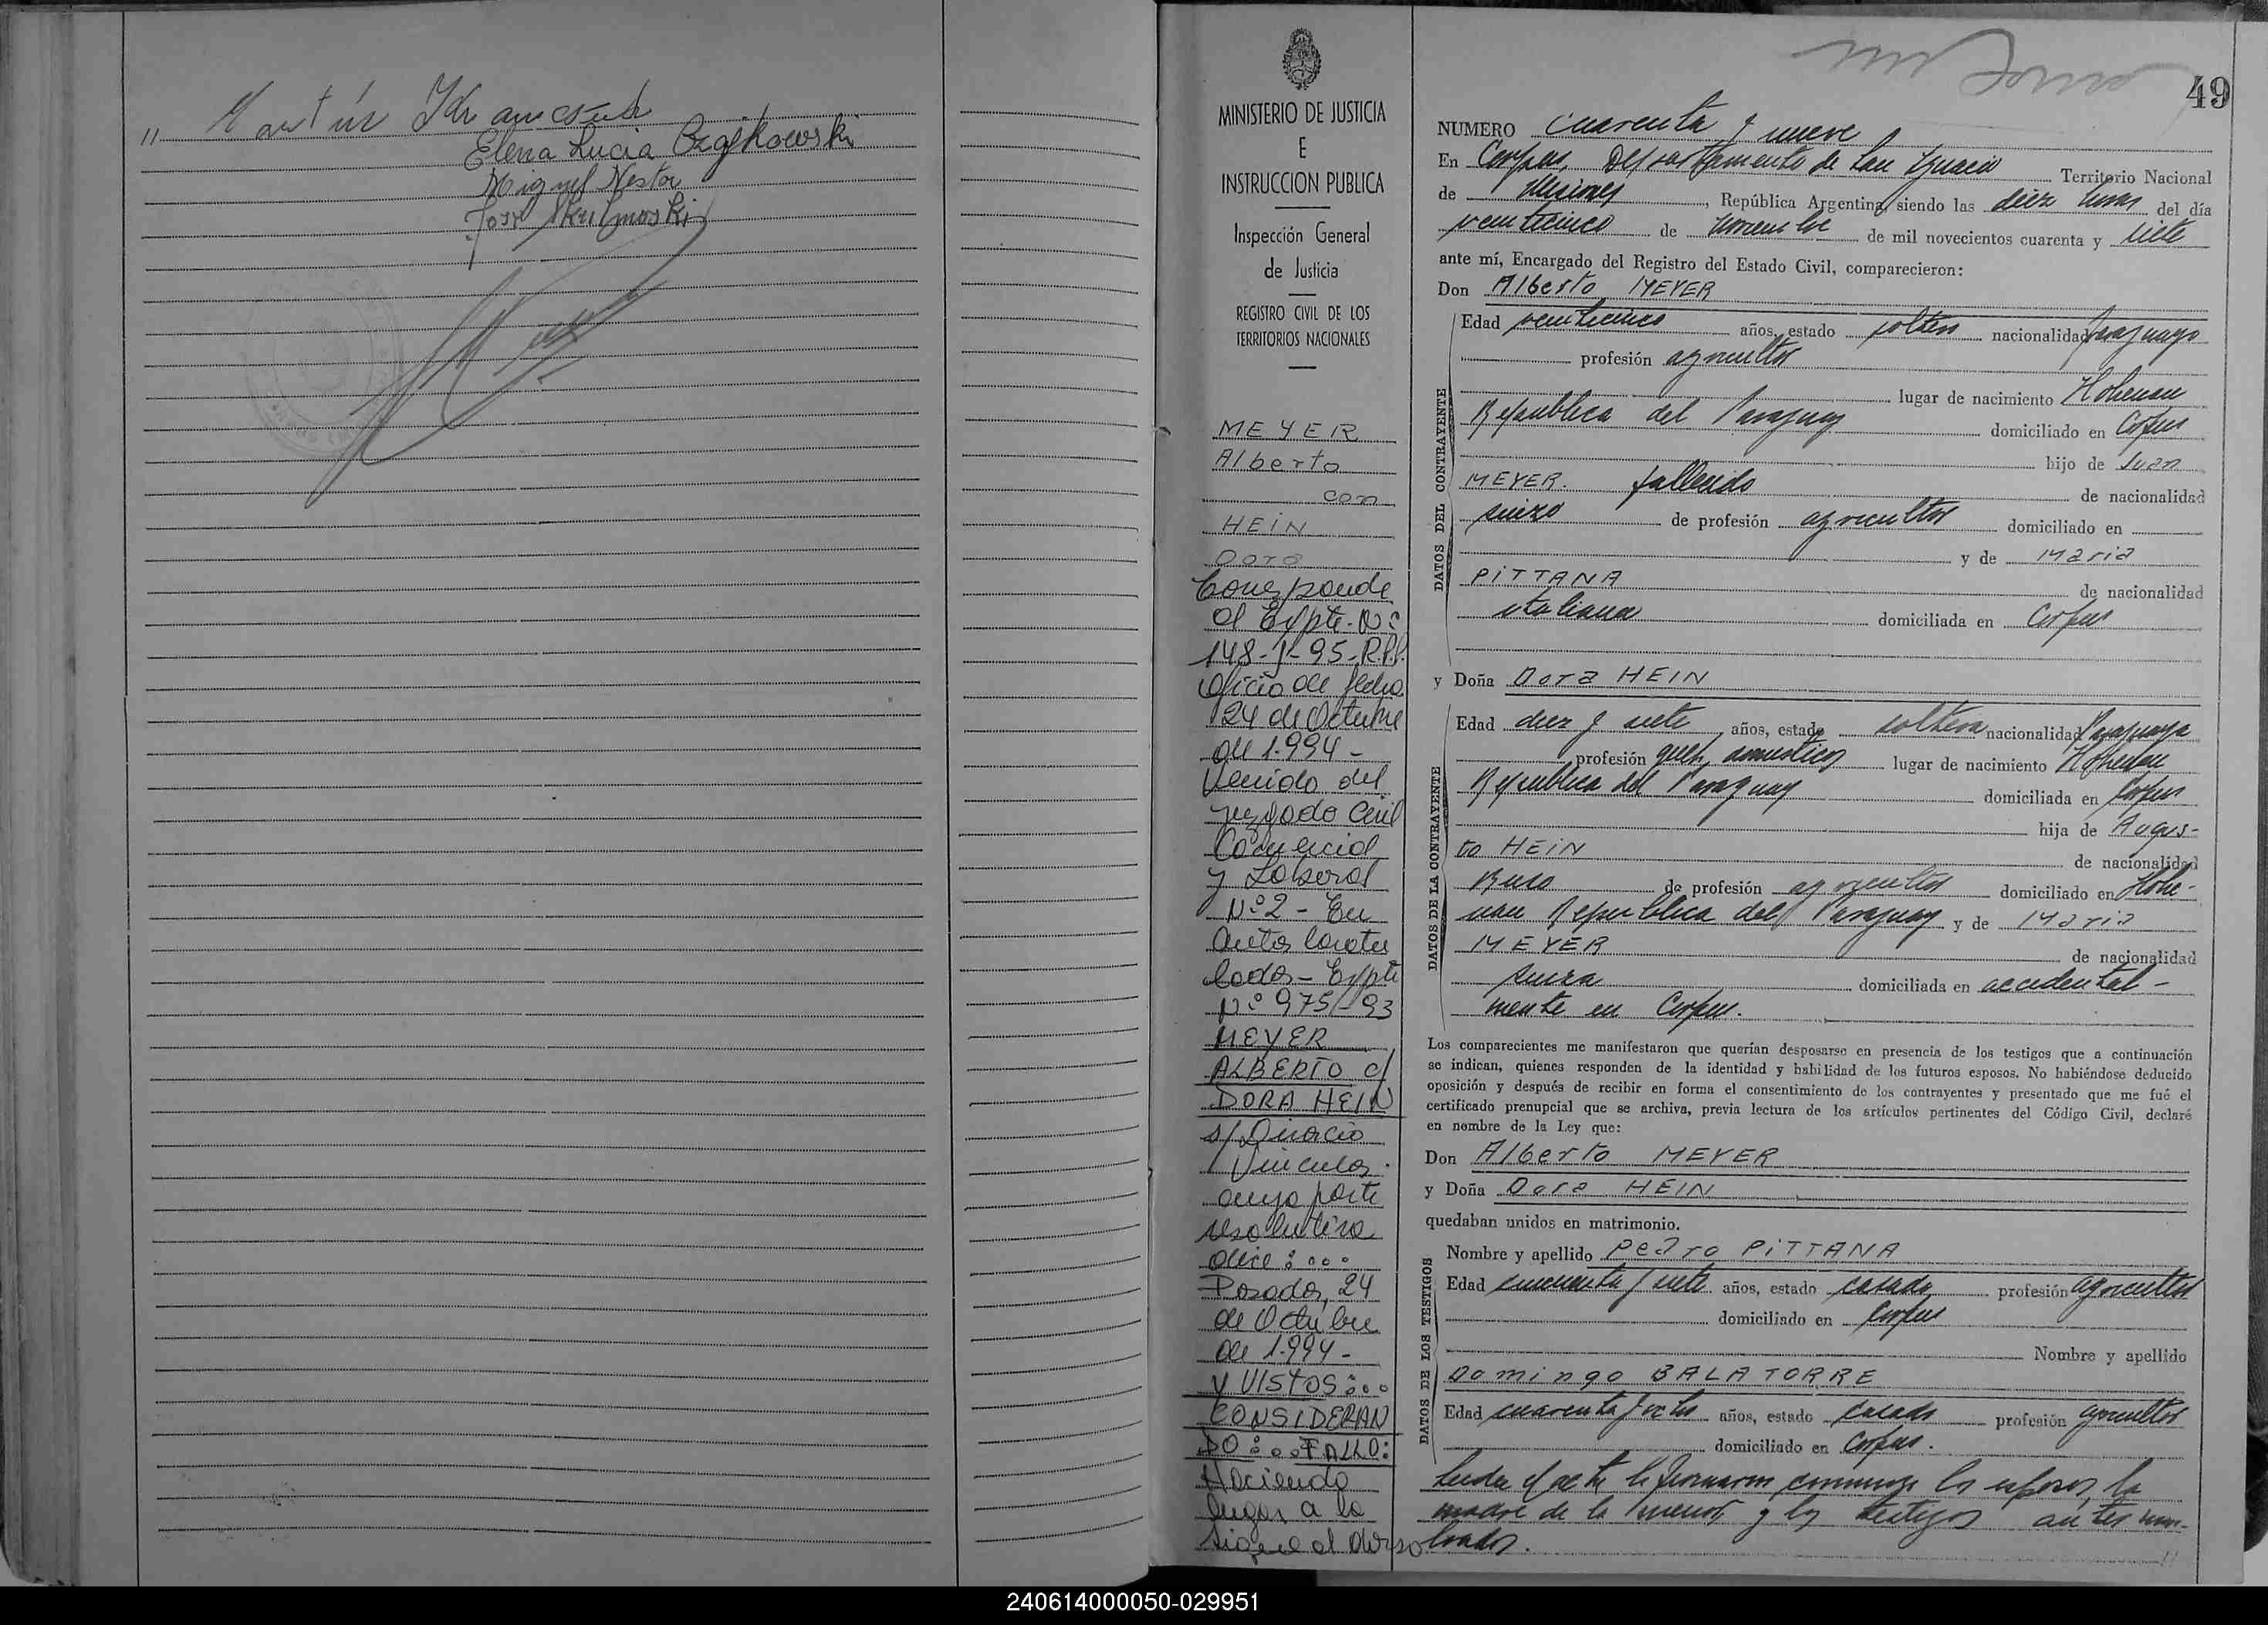 " Martín
Elena Lucia Czajkowski
Miguel Nestor
José Skulmoski
49
MINISTERIO DE JUSTICIA
E
INSTRUCCION PUBLICA
Inspección General
de Justicia
REGISTRO CIVIL DE LOS
TERRITORIOS NACIONALES
MEYER
Alberto
con
HEIN
Dora
Corresponde
al Expte. Nº
148-J-95-R.P.P.
Oficio de fecha
24 de Octubre
de 1.994-
Venido del
Juzgado Civil
Comercial
y Laboral
Nº 2 - En
autos caratu
lados - Expte
Nº 975/-93
MEYER
ALBERTO c/
DORA HEIN
s/ Divorcio
Vincular
cuya parte
resolutiva
dice: ...
Posadas, 24
de Octubre
de 1.994-
Y VISTOS:...
CONSIDERAN
DO:...FALLO:
Haciendo
lugar a la
Sigue al dorso
NUMERO cuarenta y nueve
En Corpus, Departamento de San Ignacio Territorio Nacional
de Misiones, República Argentina, siendo las diez horas del día
veinticinco de noviembre de mil novecientos cuarenta y siete
ante mí, Encargado del Registro del Estado Civil, comparecieron:
Don Alberto MEYER
DATOS DEL CONTRAYENTE
Edad veinticinco años, estado soltero nacionalidad paraguayo
profesión agricultor
lugar de nacimiento Hohenau
Republica del Paraguay domiciliado en Corpus
hijo de Juan
MEYER. fallecido de nacionalidad
suizo de profesión agricultor domiciliado en
y de Maria
PITTANA de nacionalidad
italiana domiciliada en Corpus
y Doña Dora HEIN
DATOS DE LA CONTRAYENTE
Edad diez y siete años, estado soltera nacionalidad Paraguaya
profesión queh. domesticos lugar de nacimiento Hohenau
Republica del Paraguay domiciliada en Corpus
hija de Augus-
to HEIN de nacionalidad
Ruso de profesión agricultor domiciliado en Hohe-
nau Republica del Paraguay y de Maria
MEYER de nacionalidad
suiza domiciliada en accidental-
mente en Corpus.
Los comparecientes me manifestaron que querían desposarse en presencia de los testigos que a continuación
se indican, quienes responden de la identidad y habilidad de los futuros esposos. No habiéndose deducido
oposición y después de recibir en forma el consentimiento de los contrayentes y presentado que me fué el
certificado prenupcial que se archiva, previa lectura de los artículos pertinentes del Código Civil, declaré
en nombre de la Ley que:
Don Alberto MEYER
y Doña Dora HEIN
quedaban unidos en matrimonio.
DATOS DE LOS TESTIGOS
Nombre y apellido Pedro PITTANA
Edad cincuenta y siete años, estado casado profesión agricultor
domiciliado en Corpus
Nombre y apellido
Domingo BALATORRE
Edad cuarenta y ocho años, estado casado profesión agricultor
domiciliado en Corpus.
Leida el acta la firmaron conmigo los esposos, la
madre de la menor y los testigos antes nom-
brados.
240614000050-029951